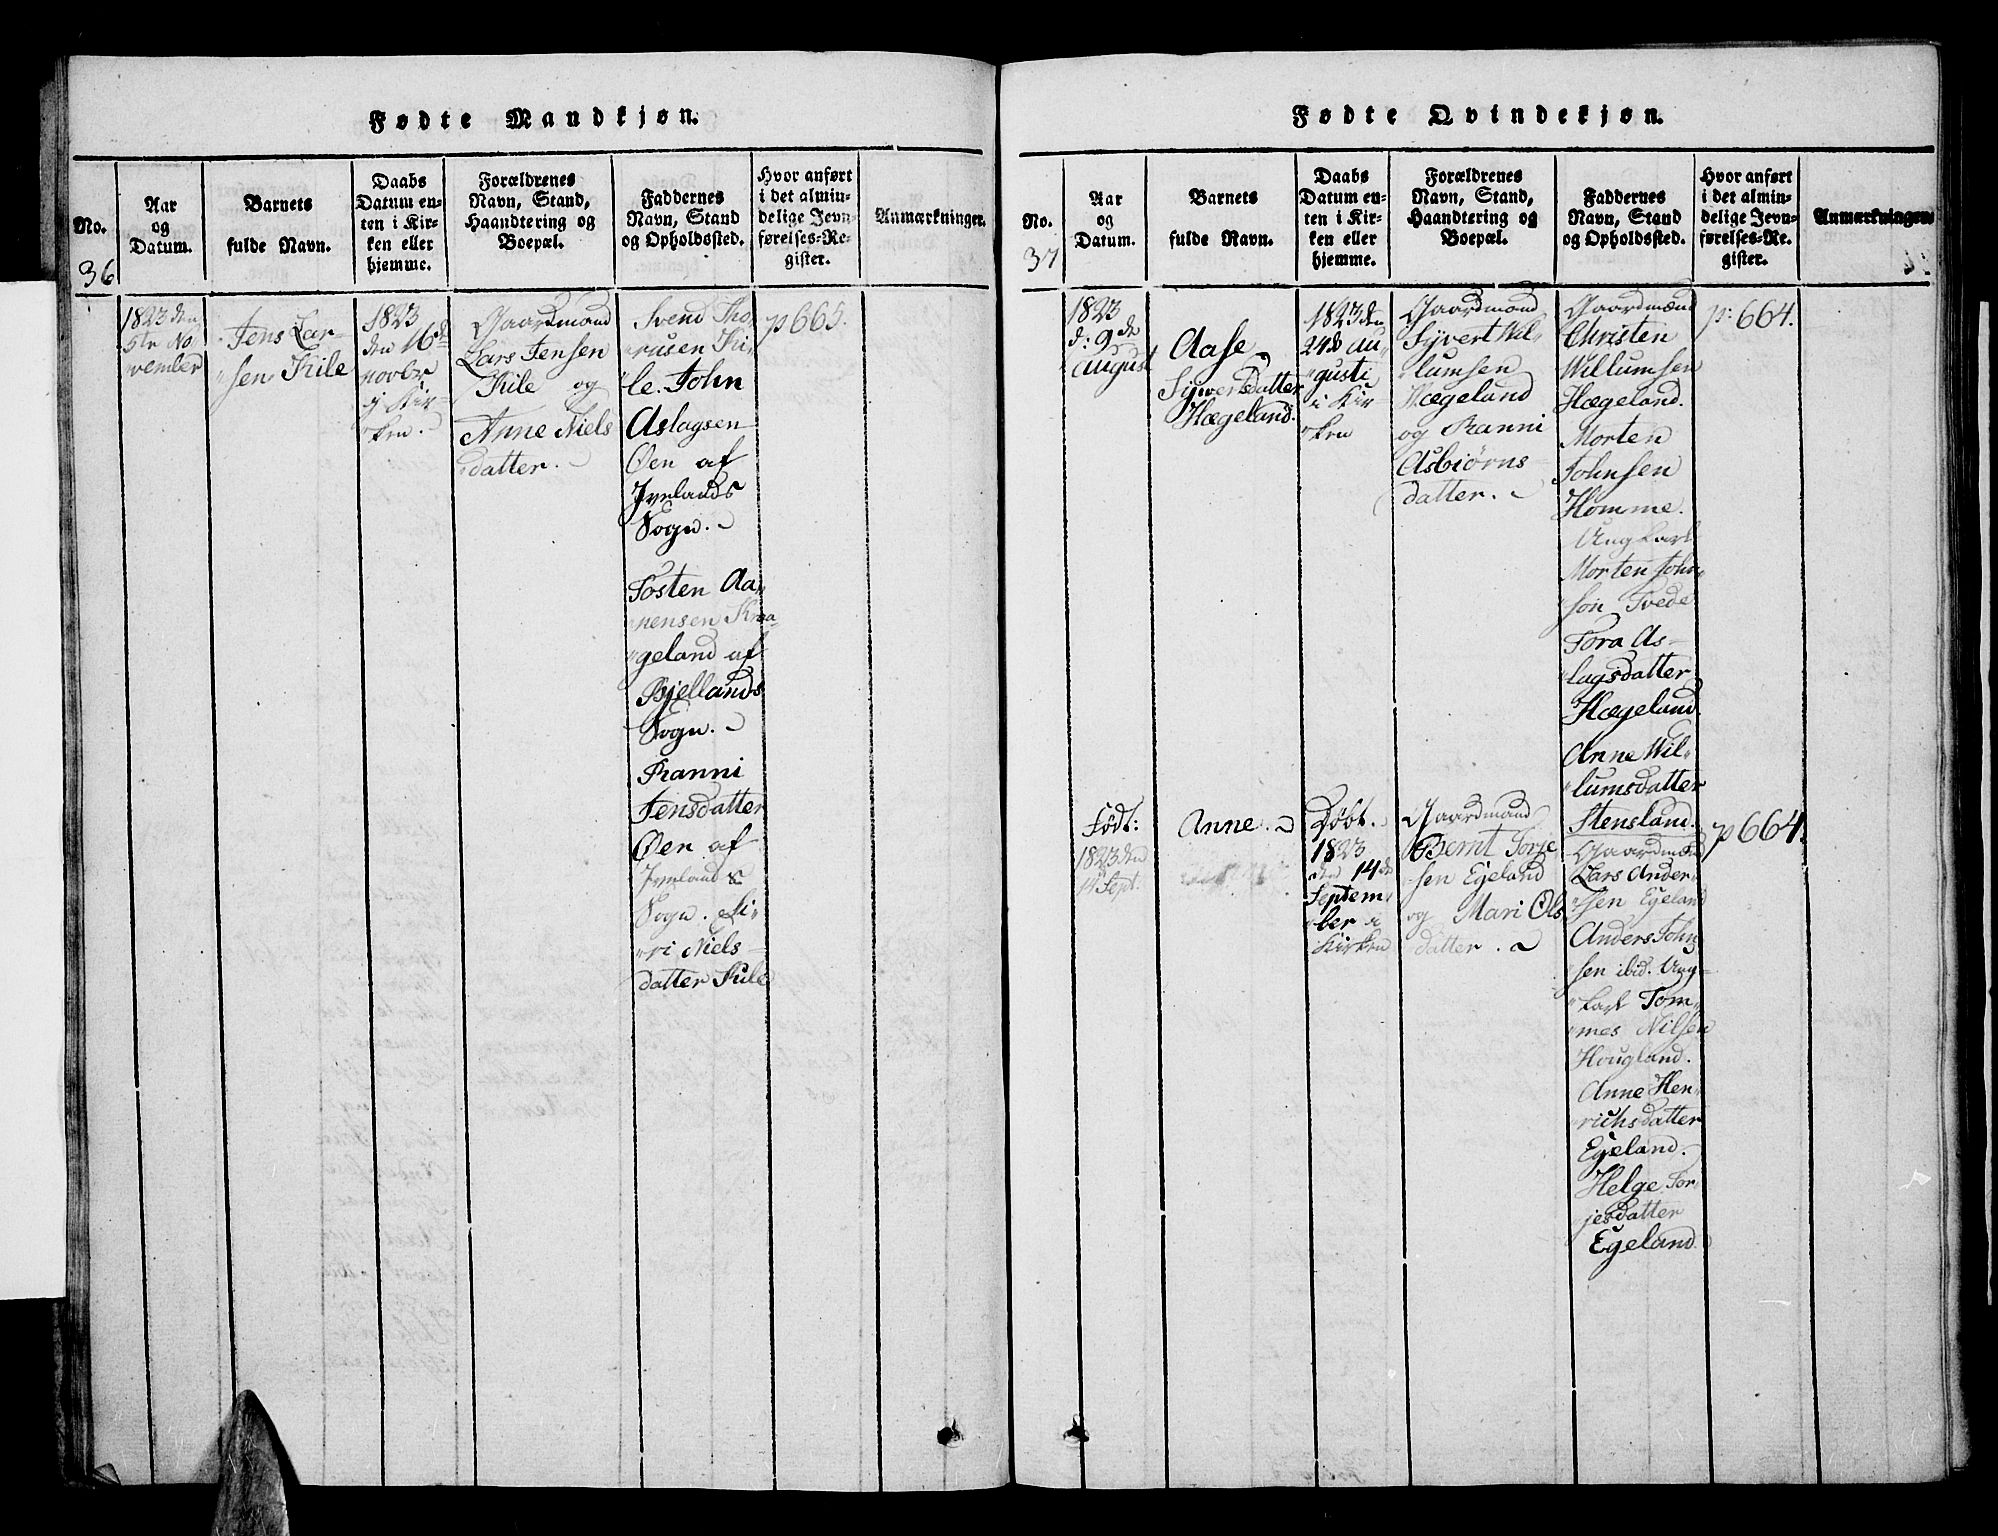 Fødte Mandkjøn.
No.
36
Aar
og
Datum.
Barnets
fulde Navn.
Daabs
Datum en-
ten i Kir-
ken eller
hjemme.
Forældrenes
Navn, Stand,
Haandtering og
Boepæl.
Faddernes
Navn, Stand
og Opholdssted.
Hvor anført
i det almin-
delige Jevn-
førelses-Re-
gister.
Anmærkninger.
1823 den
5te No
vember
Jens Lar-
sen Kile
1823
den 16de
novbr
i Kir-
ken.
Gaardmand
Lars Jensen
Kile og
Anne Niels
datter.
Svend Tho
rusen Ki-
le. John
Aslagsen
Øen af
Ivelands
Sogn.
Tosten Aa-
nensen Kraa-
geland af
Bjellands
Sogn.
Ranni
Jensdatter
Øen af
Ivelands
Sogn. Si-
ri Niels-
datter Kile
p 665.
Fødte Qvindekjøn.
No.
37
Aar
og
Datum.
Barnets
fulde Navn.
Daabs
Datum en-
ten i Kir-
ken eller
hjemme.
Forældrenes
Navn, Stand,
Haandtering og
Boepæl.
Faddernes
Navn, Stand
og Opholdssted.
Hvor anført
i det almin-
delige Jevn-
førelses-Re-
gister.
Anmærkninger
1823
d: 9de
August
Aase
Syversdatter
Hægeland.
1823 den
24de Au-
gusti
i Kir
ken
Gaardmand
Syvert Wil-
lumsen
Hægeland
og Ranni
Asbiørns-
datter.
Gaardmænd
Christen
Willumsen
Hægeland.
Morten
Johnsen
Homme.
Ungkarl
Morten John-
son Tvede
Tora As-
lagsdatter
Hægeland.
Anne Wil-
lumsdatter
Stensland.
p: 664.
Født:
1823 den
14 Sept.
Anne.
Døbt.
1823
den 14de
Septem-
ber i
Kirken
Gaardmand
Bernt Torje
sen Egeland
og Mari Ols
datter.
Gaardmænd
Lars Ander-
sen Egeland
Anders John
sen ibid. Ung-
karl Tom-
mes Nilsen
Hougland.
Anne Hen-
richsdatter
Egeland.
Helge Tor-
jesdatter
Egeland.
p 664.